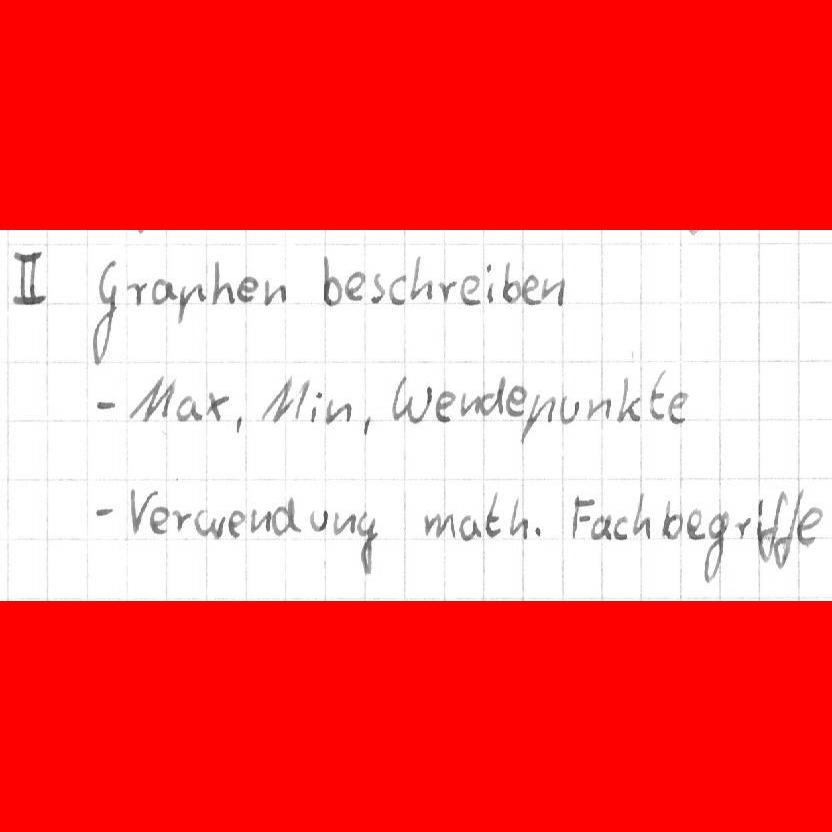 II Graphen beschreiben
- Max, Min, Wendepunkte
- Verwendung math. Fachbegriffe